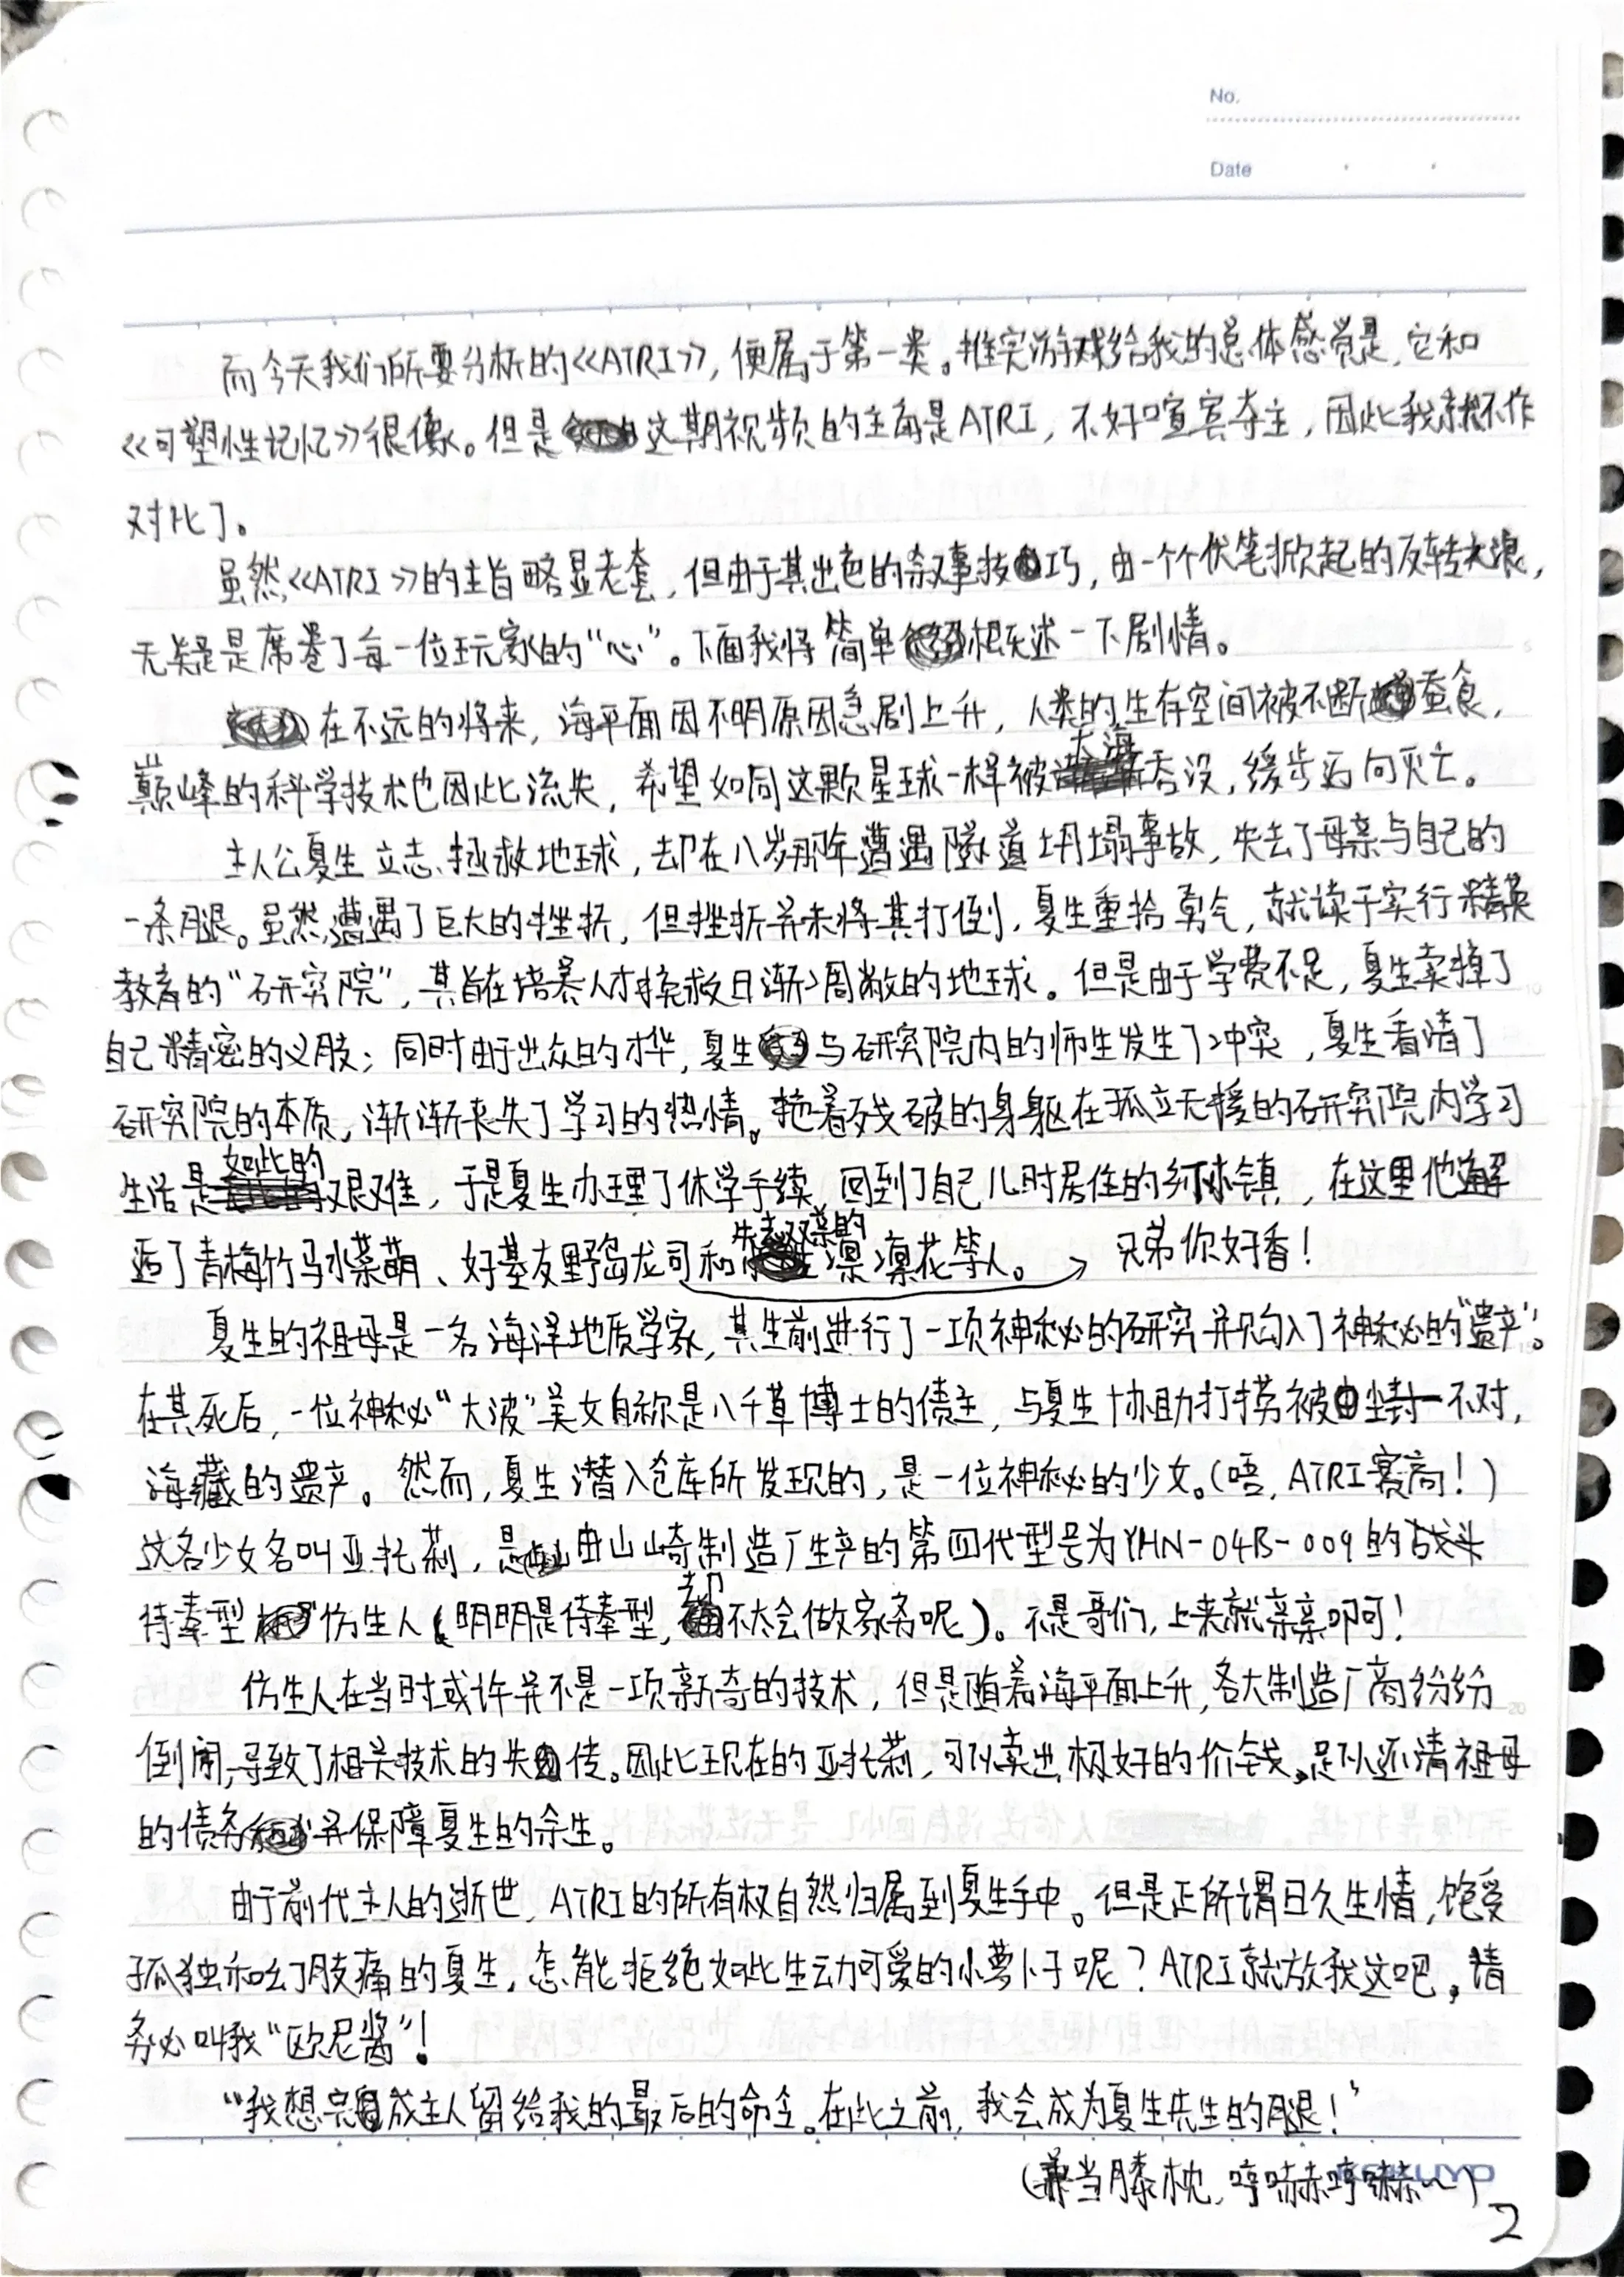 No.
Date
而今天我们所要分析的《ATRI》,便属于第一类。推完游戏给我的总体感觉是,它和
《可塑性记忆》很像。但是这期视频的主角是ATRI,不好喧宾夺主,因此我就不作
对比了。
虽然《ATRI》的主旨略显老套,但由于其出色的叙事技巧,由一个个伏笔掀起的反转大浪,
无疑是席卷了每一位玩家的“心”。下面我将简单概述一下剧情。
在不远的将来,海平面因不明原因急剧上升,人类的生存空间被不断蚕食,
巅峰的科学技术也因此流失,希望如同这颗星球一样被大海吞没,缓步迈向灭亡。
主人公夏生立志拯救地球,却在八岁那年遭遇隧道坍塌事故,失去了母亲与自己的
一条腿。虽然遭遇了巨大的挫折,但挫折并未将其打倒,夏生重拾勇气,就读于实行精英
教育的“研究院”,其旨在培养人才挽救日渐凋敝的地球。但是由于学费不足,夏生卖掉了
自己精密的义肢;同时由于出众的才华,夏生与研究院内的师生发生了冲突,夏生看清了
研究院的本质,渐渐丧失了学习的热情。拖着残破的身躯在孤立无援的研究院内学习
生活是如此的艰难,于是夏生办理了休学手续,回到了自己儿时居住的乡镇,在这里他邂
逅了青梅竹马水菜萌、好基友野岛龙司和失去双亲的凛凛花等人。→兄弟你好香!
夏生的祖母是一名海洋地质学家,其生前进行了一项神秘的研究并购入了神秘的“遗产”。
在其死后,一位神秘“大波”美女自称是八千草博士的债主,与夏生协助打捞被尘封一不对,
海藏的遗产。然而,夏生潜入仓库所发现的,是一位神秘的少女。(唔,ATRI赛高!)
这名少女名叫亚托莉,是由山崎制造厂生产的第四代型号为YHN-04B-009的战斗
侍奉型仿生人(明明是侍奉型,却不太会做家务呢)。不是哥们,上来就亲亲啊!
仿生人在当时或许并不是一项新奇的技术,但是随着海平面上升,各大制造厂商纷纷
倒闭,导致了相关技术的失传。因此现在的亚托莉,可以卖出极好的价钱,足以还清祖母
的债务并保障夏生的余生。
由于前代主人的逝世,ATRI的所有权自然归属到夏生手中。但是正所谓日久生情,饱受
孤独和幻肢痛的夏生,怎能拒绝如此生动可爱的小萝卜子呢?ATRI就放我这吧,请
务必叫我“欧尼酱”!
“我想完成主人留给我的最后的命令。在此之前,我会成为夏生先生的腿!”
KOKUYO
(兼当膝枕,哼嘛哼嘛~)
2